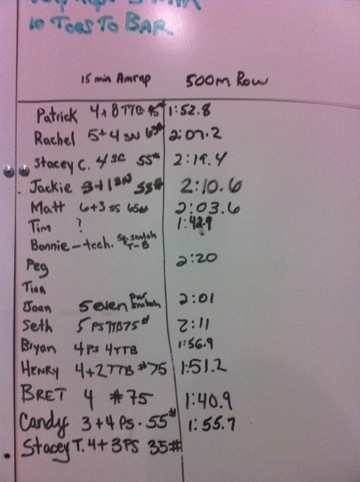 10 Toes To Bar
15 min Amrap 500m Row
Patrick 4+8 TTB 95# 1:52.8
Rachel 5+4 SN 65# 2:07.2
Stacey C. 4 SC 55# 2:19.4
Jackie 3+1 SN 55# 2:10.6
Matt 6+3 SS 65# 2:03.6
Tim ? 1:42.9
Bonnie - tech. Sq. Snatch T-B
Peg 2:20
Tina
Joan 5 even pwr snatch 2:01
Seth 5 PS TTB 75# 2:11
Bryan 4 PS 4 TTB 1:56.9
Henry 4+2 TTB #75 1:51.2
Bret 4 #75 1:40.9
Candy 3+4 PS - 55# 1:55.7
Stacey T. 4+3 PS 35#